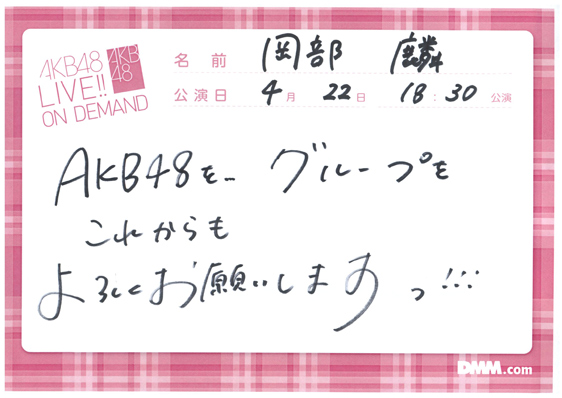 AKB48
LIVE!!
ON DEMAND
AKB
48
名前 岡部 麟
公演日 4月 22日 18:30 公演
AKB48を… グループを
これからも
よろしくお願いしますっ!!!
DMM.com